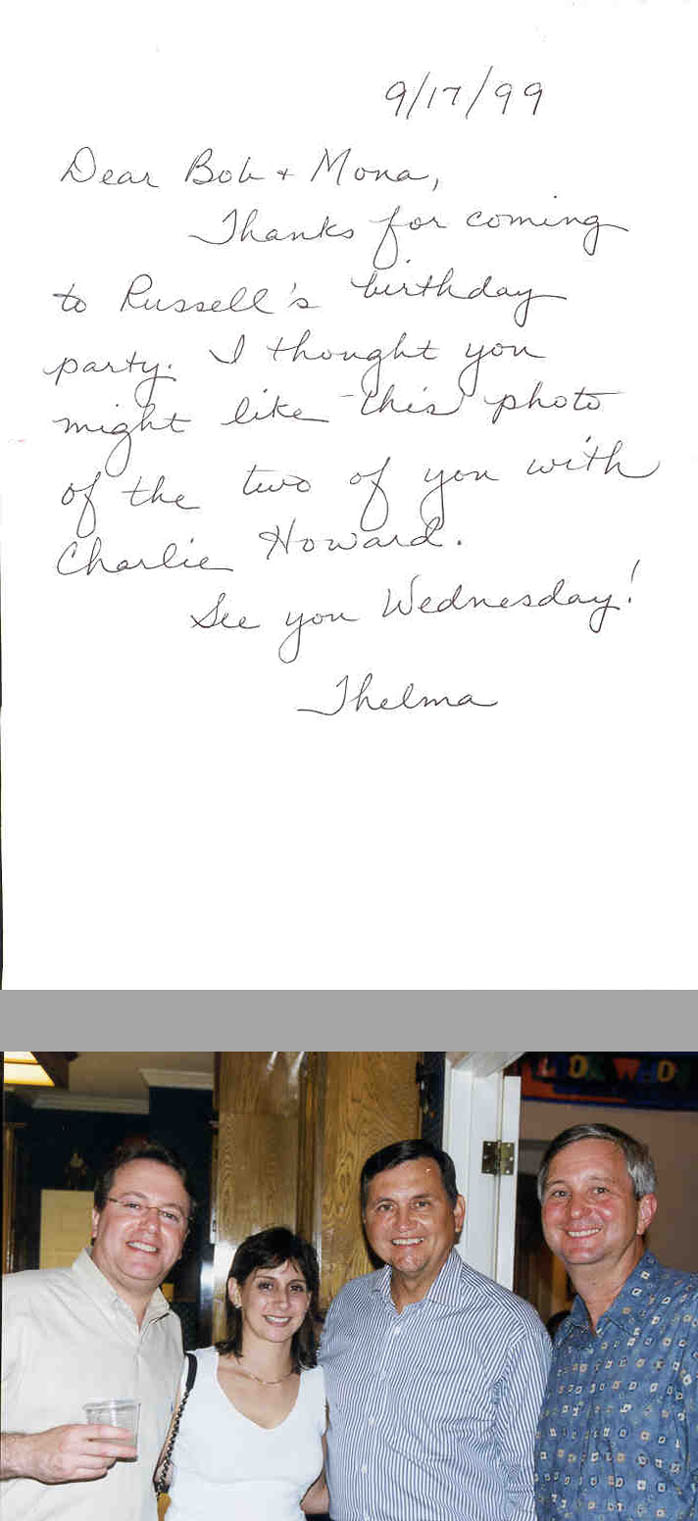 9/17/99
Dear Bob + Mona,
Thanks for coming
to Russell's birthday
party. I thought you
might like this photo
of the two of you with
Charlie Howard.
See you Wednesday!
Thelma
LOOK WHO'S